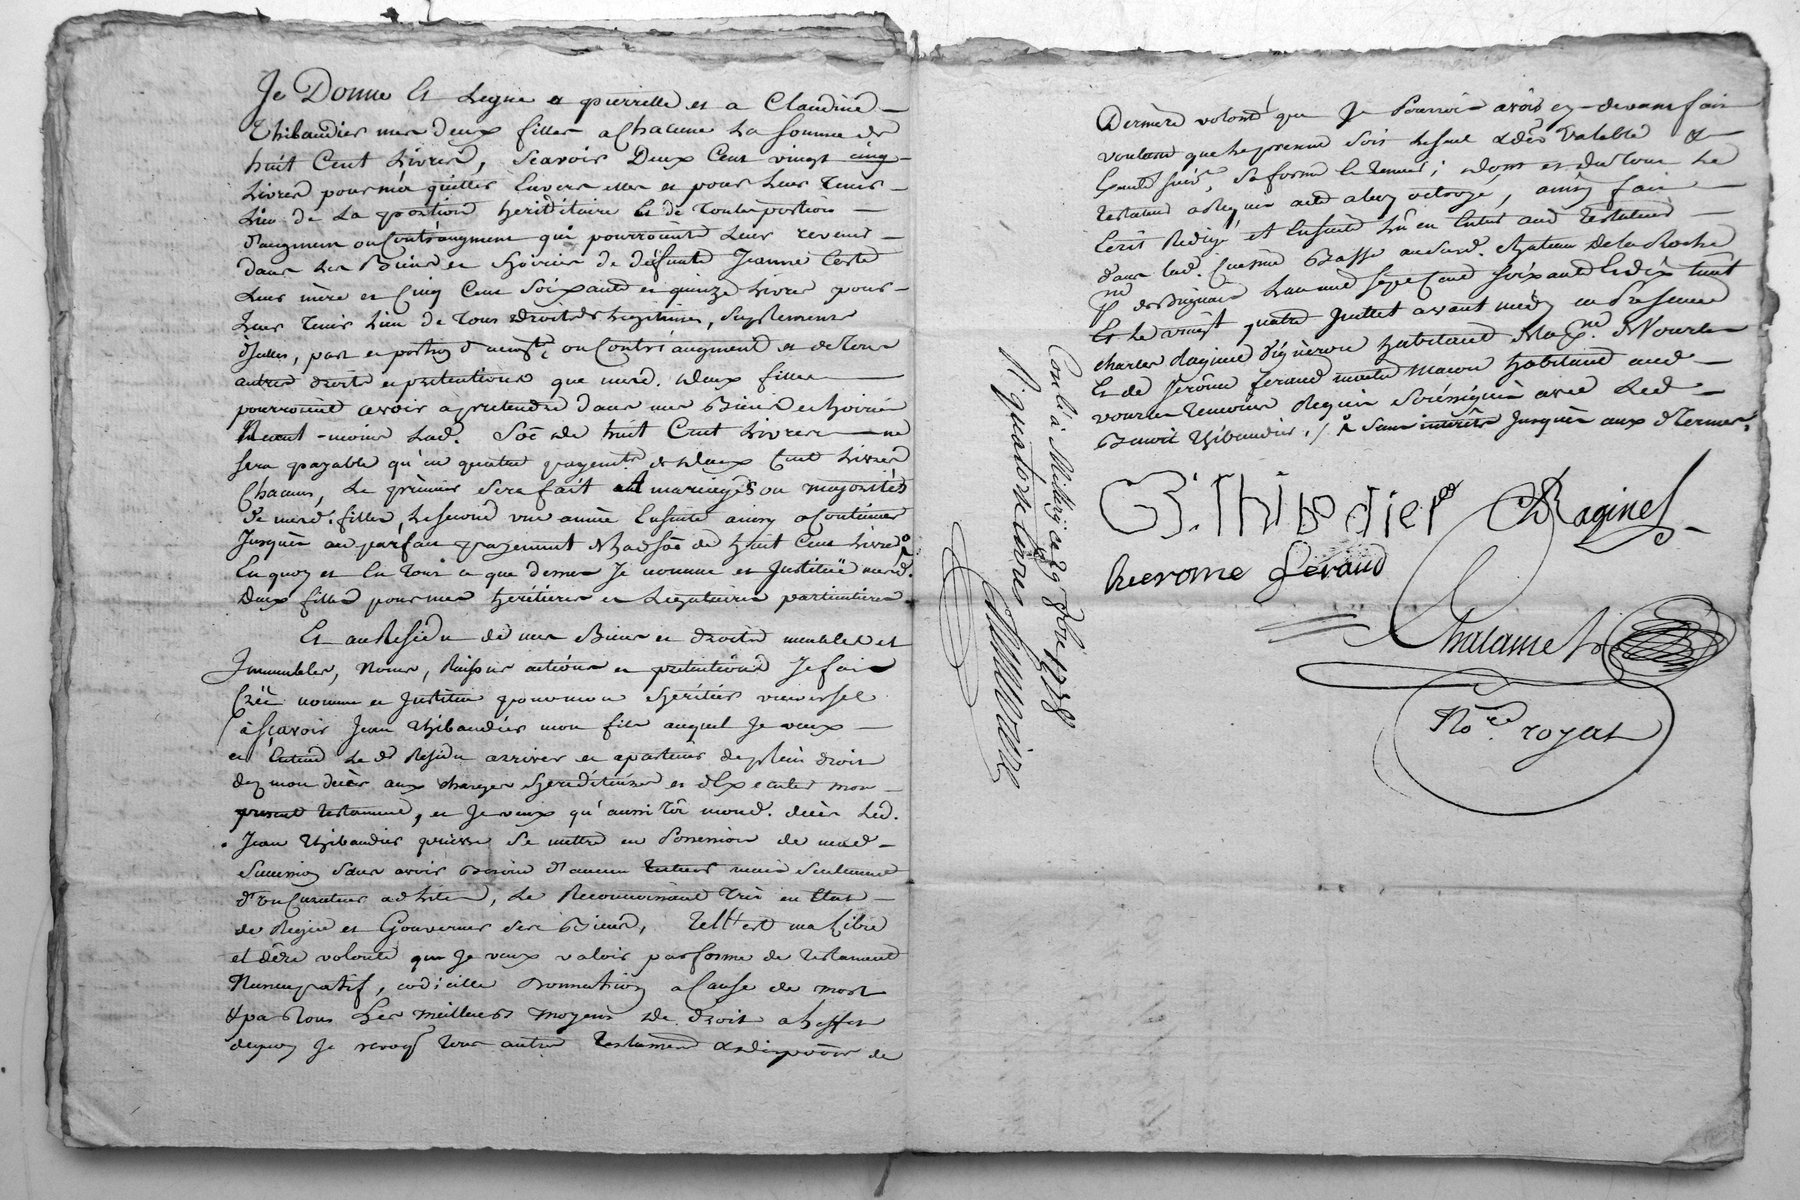 Je Donne et Legue a pierrette et a Claudine
Thibaudier mes deux filles a Chacune La somme de
huit Cent Livres, Scavoir Deux Cent vingt cinq
Livres pour m'acquitter Envers elles et pour Leur tenir
Lieu de La portion hereditaire et de toutes portions
d'augment ou Contraugment qui pourroient Leur revenir
dans Les Biens et hoiries de deffunte Jeanne
Leur mère et Cinq Cent Soixante et quinze Livres pour
Leur tenir Lieu de tous droits de Legitimes, Suplements
d'Icelles, part et portion d'augt. ou Contraugment et de tous
autres droits et pretentions que mesd. deux filles
pourroient avoir a pretendre dans mes Biens et hoirie
Neant-moins Lad. Soe de huit Cent Livres ne
Sera payable qu'en quatre payemts. de deux Cent Livres
Chacuns, Le premier Sera fait aux mariages ou majorités
de mesd. filles, Le second une année Ensuite ainsy a Continuer
Jusques au parfait payement de Lad Soe de huit Cent Livres
En quoy et En tout ce que dessus Je nomme et Justitue mesd.
Deux filles pour mes heritieres et Legataires particulieres
Et au Residu de mes Biens et droits meubles et
Immeubles, Noms, Raisons actions et pretentions Je fais
Créé nomme et Justitue pour mon heritier universel
a Scavoir Jean Thibaudier mon fils auquel Je veux
et Entend Le d Residu arriver et apartenir de plein droit
dez mon decès aux charges hereditaires et d'Executer mon
present testament, et Je veux qu'aussi tôt mond. decès Led.
Jean Thibaudier puisse Se mettre en Possession de mad
Succession Sans avoir Besoin d'aucun tuteur mais Seulement
d'un Curateur ad Lites, Le Reconnoissant Très en Etat
de Regir et Gouverner Ses Biens, Tell'est ma Libre
et dêre volonté que Je veux valoir par forme de testament
Nuncupatif, codicille Donnation a Cause de mort
& par tous Les meilleurs moyens de droit a Leffet
dequoy Je revoque tous autres testaments & dispositions de
Dernière volonté que Je Pourrois avoir cy-devant fait
voulant que Le present Soit Le seul & dêr valable &
Execute Suivt. Sa forme et teneur; dont et du tout Le
testateur a Requis acte a luy octroyé, ainsy fait
Ecrit Redigé et Ensuite Lû en Entier aud testateur
dans Lad. Cuisine Basse audit. chateau de La Roche
Psse de Brignais L'an mil Sept Cent Soixante et dix huit
Et Le vingt quatre Juillet avant midy en Presence
charles Raginel Vigneron habitant de Vourles
Et de Jérôme feraud maitre macon habitant aud
vourles temoins Requis Soussignés avec Led
Benoit Thibaudier. /. Sans intérêts Jusques aux d termes.
B. Thibodier Ch Raginel
hierome feraud
Chalamel
No.re royal
Con.lé à Millery ce 29 7bre 1788
R quatorze livres